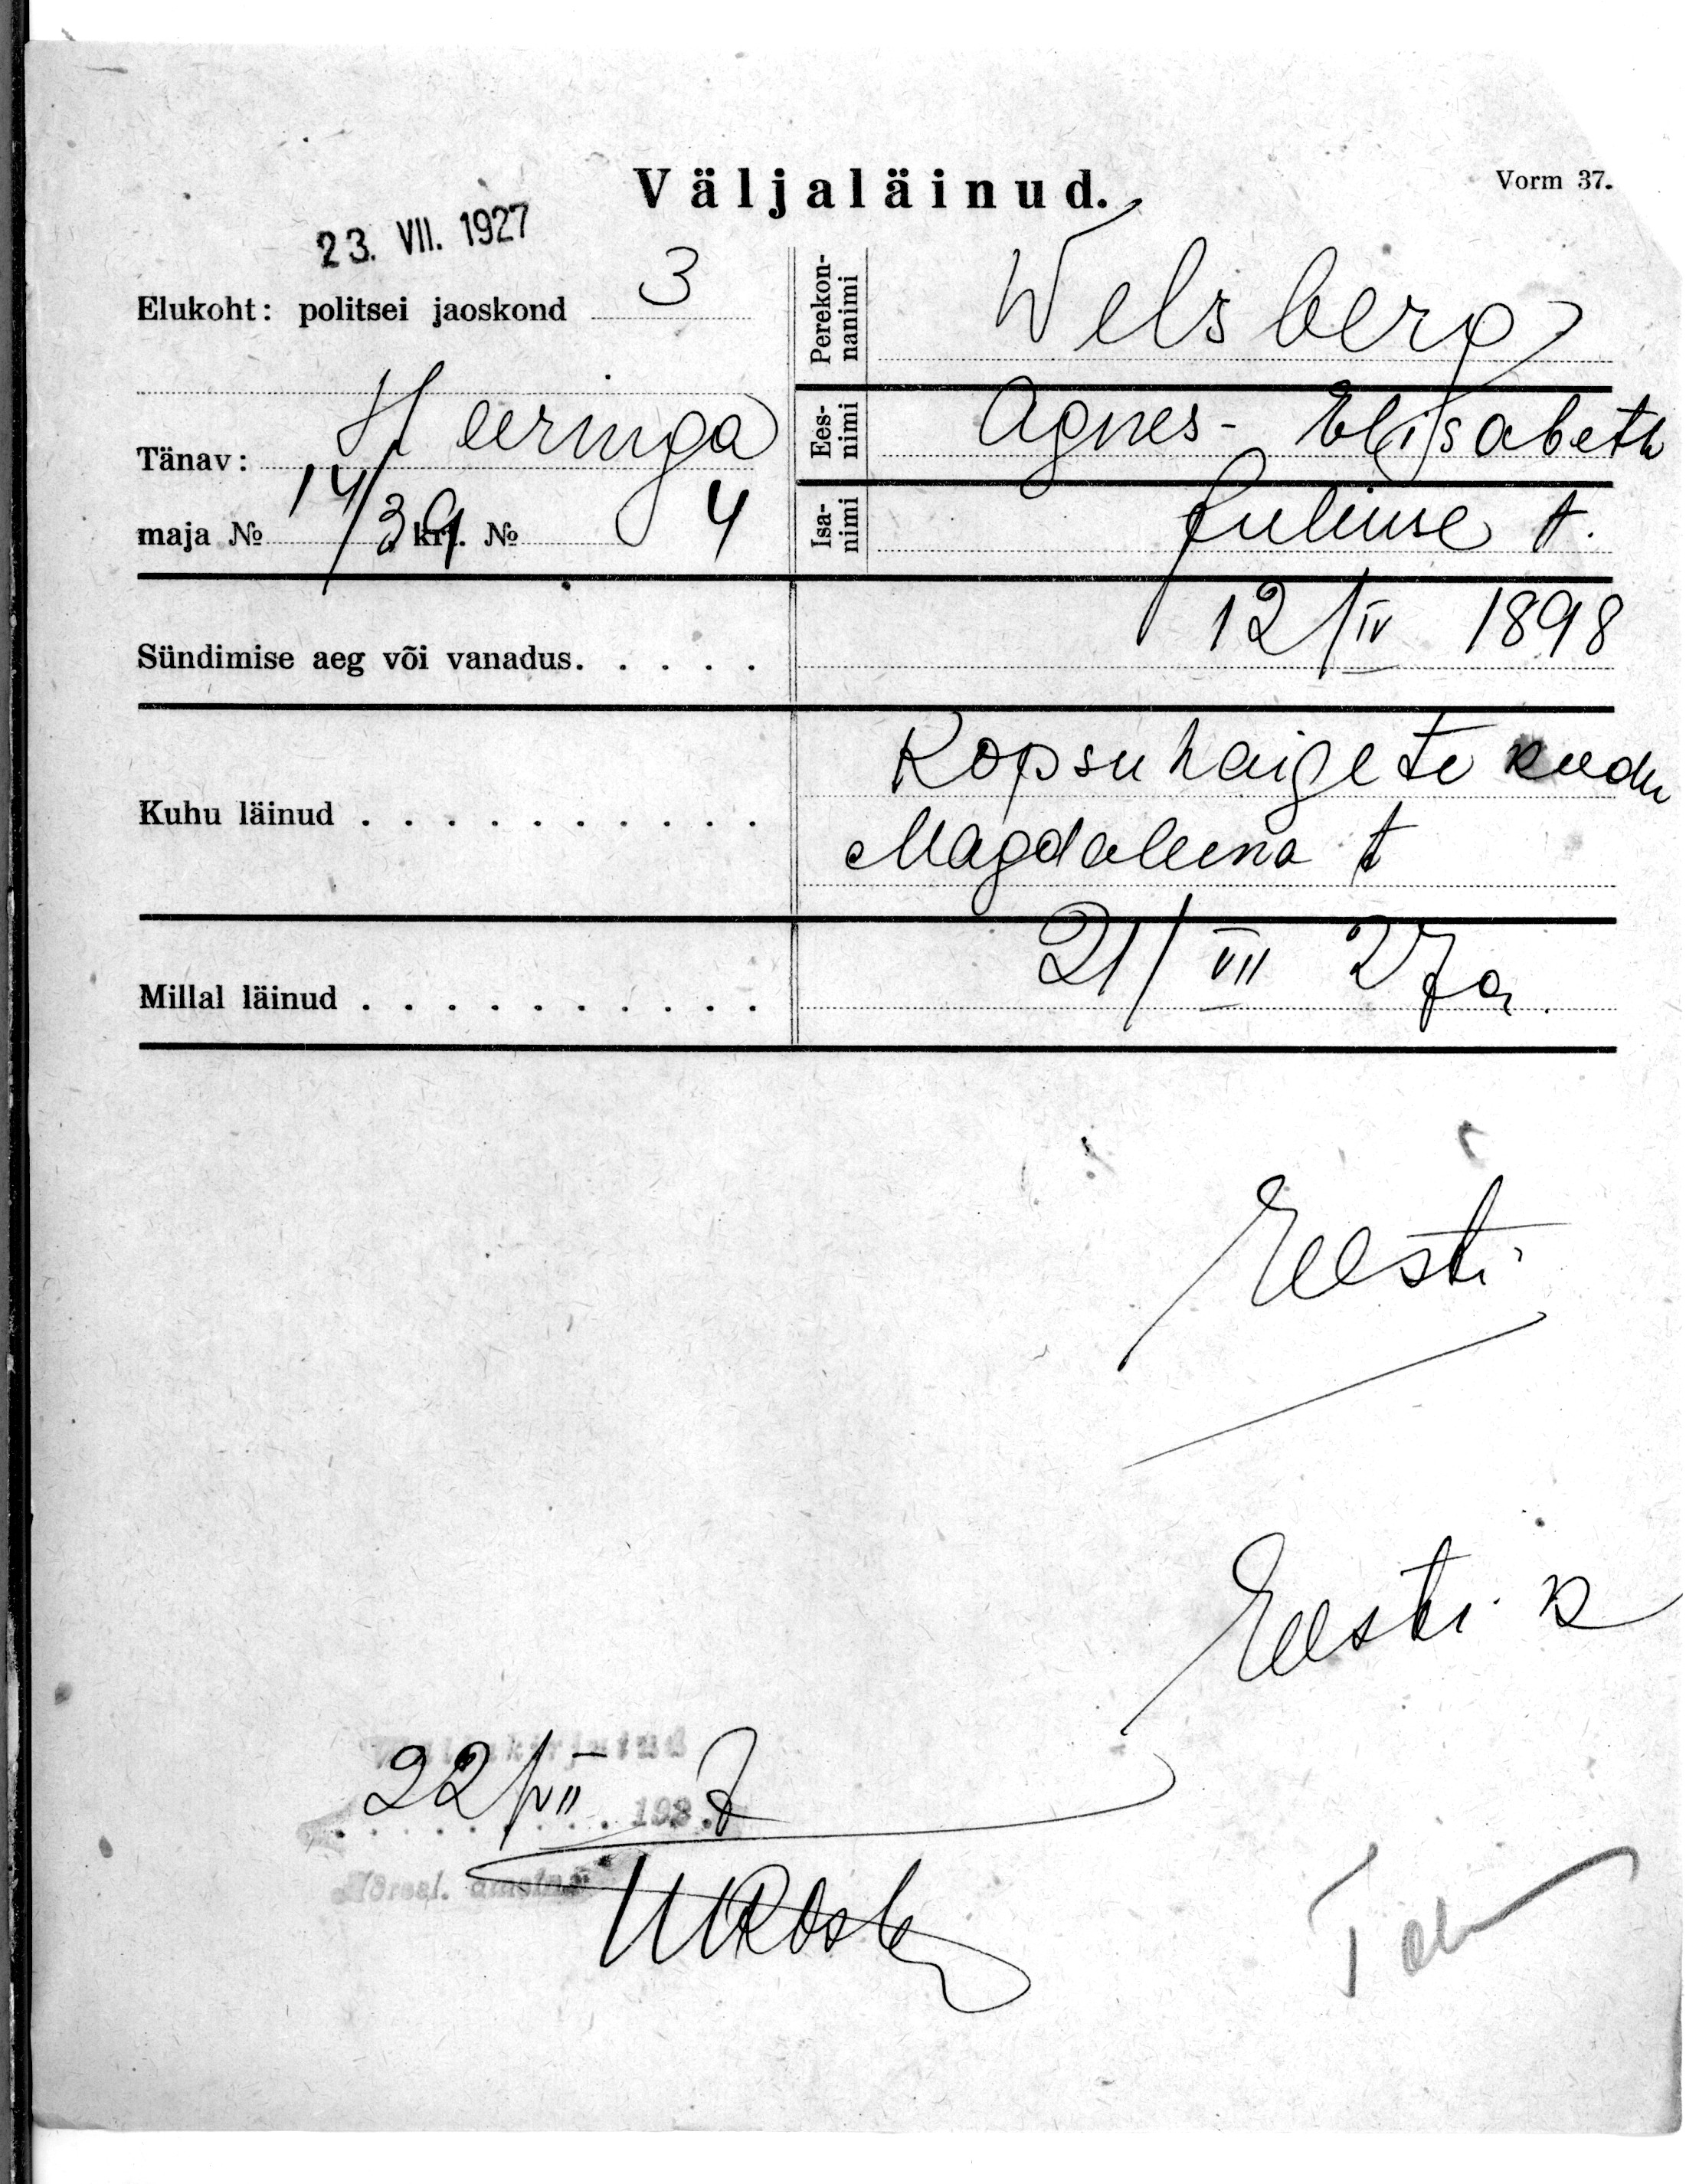 Väljaläinud.
Vorm 37.
23. VII. 1927
Elukoht: politsei jaoskond 3
Tänav: Heeringa
maja № 14/39 krt. № 4
Perekon-
nanimi
Welsberg
Ees-
nimi
Agnes-Elisabeth
Isa-
nimi
Juliuse t.
Sündimise aeg või vanadus. . . . . 12/IV 1898
Kuhu läinud . . . . . . . . . . Kopsuhaigete kodu
Magdaleena t
Millal läinud . . . . . . . . . . 21/VII 27 a.
Eesti
Eesti k
Väljakirjutud
22/VII 192 7